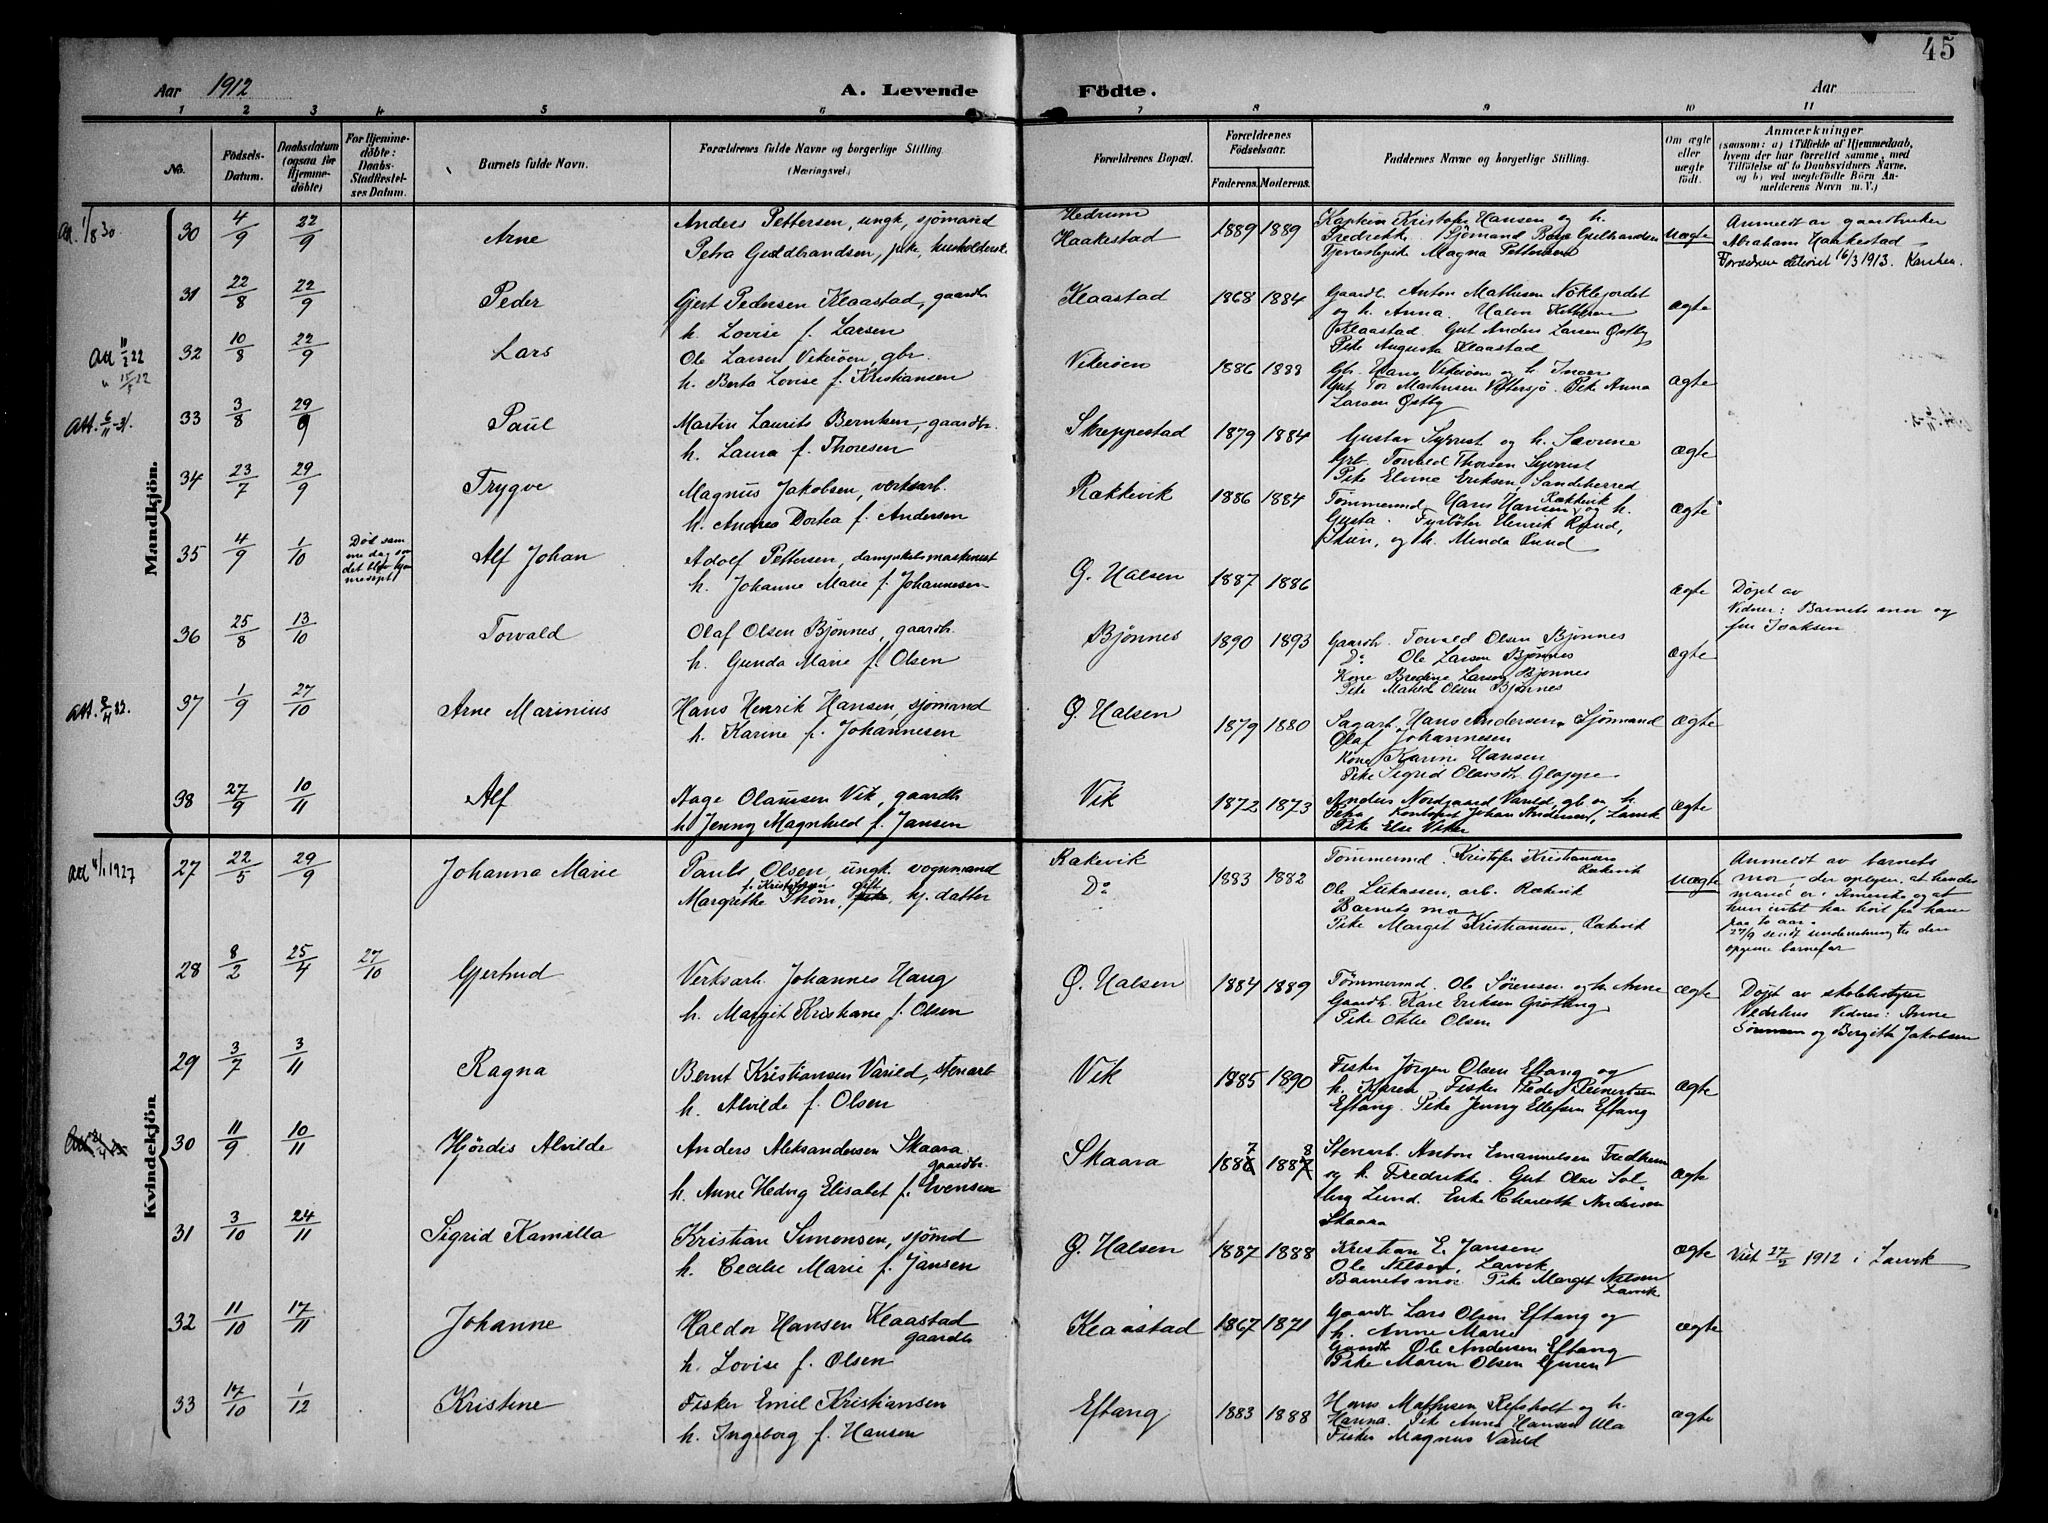 45
Aar 1912
A. Levende
Födte.
Aar
1 2 3 4 5 6 7 8 9 10 11
No.
Födsels-Datum.
Daabsdatum (ogsaa for Hjemme-döbte)
For Hjemme-döbte: Daabs-Stadfæstel-ses Datum.
Barnets fulde Navn.
Forældrenes fulde Navne og borgerlige Stilling. (Næringsvei.)
Forældrenes Bopæl.
Forældrenes Födselsaar.
Faderens. Moderens.
Faddernes Navne og borgerlige Stilling.
Om ægte eller uægte födt.
Anmærkninger
(saasom: a) i Tilfælde af Hjemmedaab, hvem der har forrettet samme, med Tilföielse af to Daabsvidners Navne. og b) ved uægtefödte Börn An-melderens Navn m. V.)
Mandkjön.
30 4/9 22/9 Arne
Anders Pettersen, ungk, sjømand
Petra Guldbrandsen, pike, husholderske
Hedrum
Haakestad
1889 1889
Kaptein Kristofer Hansen og h.
Fredrikke. Sjømand Guldbrandsen
Magna Pettersen
uægte
Anmeldt av gaardbruker
Abraham Haakestad
Forældrene 16/3 1913.
31 22/8 22/9 Peder
Gjert Pedersen Klaastad, gaardb
h. Lovise f. Larsen
Klaastad
1868 1884
Gaardb. Anton Mathisen Nøklejordet
og h. Anna.
Klaastad. Gut Anders Larsen Østby
Pike Augusta Klaastad
ægte
32 10/8 22/9 Lars
Ole Larsen Vikerøen, gbr.
h. Berta Lovise f. Kristiansen
Vikerøen
1886 1888
Gb. Hans Vikerøen og h. Inger
Gut Tor Mathisen Vittersjø. Pike Anna
Larsen Østby
ægte
33 3/8 29/9 Paul
Martin Laurits Berntsen, gaardbr.
h. Laura f. Thoresen
Skreppestad
1879 1884
Gustav Syrrist og h. Severine
Grb. Torvald Thorsen Syrrist
Pike Elvine Eriksen, Sandeherred
ægte
34 23/7 29/9 Trygve
Magnus Jakobsen, verksarb.
h. Andrea Dortea f. Andersen
Rækkevik
1886 1884
Tømmermd Hans Hansen Rækkevik og h.
Gusta. Fyrbøter Henrik Rund,
Skien, og h. Minda Rund
ægte
35 4/9 1/10
Alf Johan
Adolf Pettersen, dampskibsmaskinist
h. Johanne Marie f. Johannesen
Ø. Halsen
1887 1886
ægte
Døpt av
Vidner: Barnets mor og
fru Isaksen
36 25/8 13/10 Torvald
Olaf Olsen Bjønnes, gaardb.
h. Gunda Marie f. Olsen
Bjønnes
1890 1893
Gaardb. Torvald Olsen Bjønnes
Do Ole Larsen Bjønnes
Kone Bredine Larsen Bjønnes
Pike Matild Olsen Bjønnes
ægte
37 1/9 27/10 Arne Marinius
Hans Henrik Hansen, sjømand
h. Karine f. Johannesen
Ø. Halsen
1879 1880
Sagarb. Hans Andersen, Sjømand
Olaf Johannesen
Kone Karine Hansen
Pike Sigrid Olavsdtr. Gloppe
ægte
38 27/9 10/11 Alf
Aage Olausen Vik, gaardb
h. Jenny Magnhild f. Jansen
Vik
1872 1873
Anders Nordgaard Varild, gb. og h.
Petra Kontorist Johan Andersen, Larvik
Pike Else Viker
ægte
Kvindekjön
27 22/5 29/9 Johanna Marie
Pauls Olsen, ungk. vognmand
f. Kristofersen gift
Margrethe Thom, hj. datter
Rakevik
Do
1883 1882
Tømmermd. Kristofer Kristiansen
Rækevik
Ole Lukassen, arb. Rækevik
Barnets mor
Pike Margit Kristiansen, Rakevik
uægte
Anmeldt av barnets
mor, der oplyser, at hendes
mand er i Amerika og at
hun intet har hørt fra ham
paa to aar.
27/9 sendt underretning til den
opgivne barnefar
28 8/2 25/4 27/10 Gjertrud
Verksarb. Johannes Haug
h. Margit Kristiane f. Olsen
Ø. Halsen
1884 1889
Tømmermd. Ole Sørensen og h. Anne
Gaardb Kare Eriksen Grøtting
Pike Olsen
ægte
Døpt av skolebestyrer
Vedelhus Vidner: Anne
Sørensen og Bergitte Jakobsen
29 3/7 3/11 Ragna
Bernt Kristiansen Varild, stenarb
h. Alvilde f. Olsen
Vik
1885 1890
Fisker Jørgen Olsen Eftang og
h. Karen. Fisker Peder Reinertsen
Eftang. Pike Jenny Ellefsen Eftang
ægte
30 11/9 10/11 Hjördis Alvilde
Anders Aleksandersen Skaara
gaardbr.
h. Anne Hedvig Elisabet f. Evensen
Skaara
1887 1888
Stenarb. Anton Emanuelsen Fredheim
og h. Fredrikke. Gut Olav Sol
berg Lund. Enke Charlotte Andersen
Skaara
ægte
31 3/10 24/11 Sigrid Kamilla
Kristian Simonsen, sjømd
h. Cecilie Marie f. Jansen
Ø. Halsen
1887 1888
Kristian E. Jansen
Ole Nilsen, Larvik
Barnets mor Pike Margit Nilsen
Larvik
ægte
Viet 27/2 1912 i Larvik
32 11/10 17/11 Johanne
Haldor Hansen Klaastad
gaardb
h. Lovise f. Olsen
Klaastad
1867 1871
Gaardb Lars Olsen Eftang og
h. Anne Marie
Gaardb Ole Andersen Eftang
Pike Maren Olsen Guren
ægte
33 17/10 1/12 Kristine
Fisker Emil Kristiansen
h. Ingeborg f. Hansen
Eftang
1883 1888
Hans Mathisen Refsholt og h.
Hanna. Pike Anna Hansen Ula
Fisker Magnus Varild
ægte